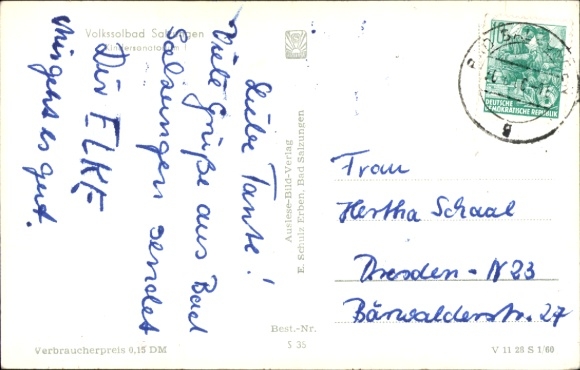 Volkssolbad Salzungen
Kindersanatorium I
Liebe Tante!
Viele Grüße aus Bad
Salzungen sendet
Dir ELKE
Mir geht es gut.
Auslese-Bild-Verlag
E. Schulz Erben, Bad Salzungen
10
5
DEUTSCHE
DEMOKRATISCHE REPUBLIK
Frau
Hertha Schaal
Dresden-N23
Bärwalderstr. 27
Best.-Nr.
S 35
Verbraucherpreis 0,15 DM
V 11 28 S 1/60